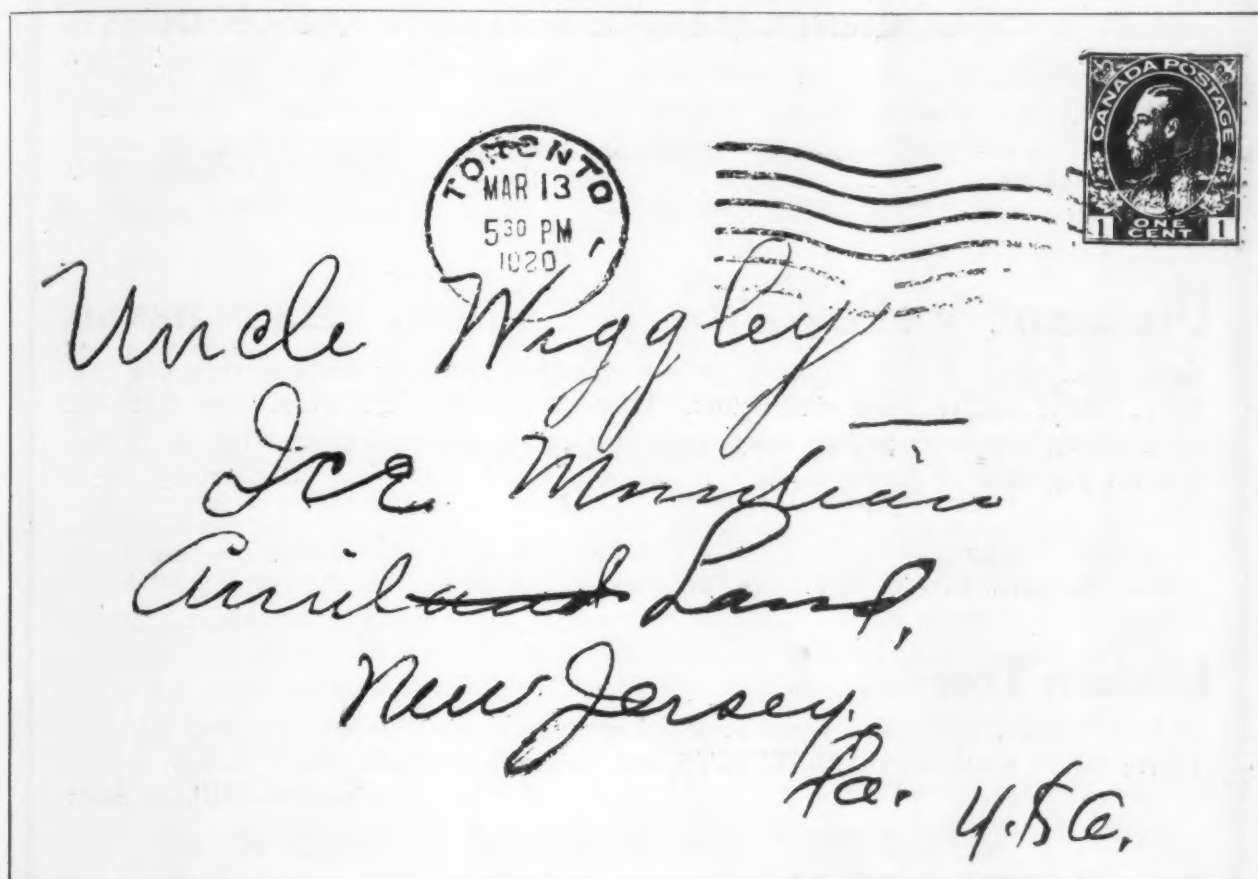 CANADA POSTAGE
1 ONE CENT 1
TORONTO
MAR 13
5 30 PM
1920
Uncle Wiggley
Ice Mountain
Animal Land,
New Jersey.
Pa. U.S.A.